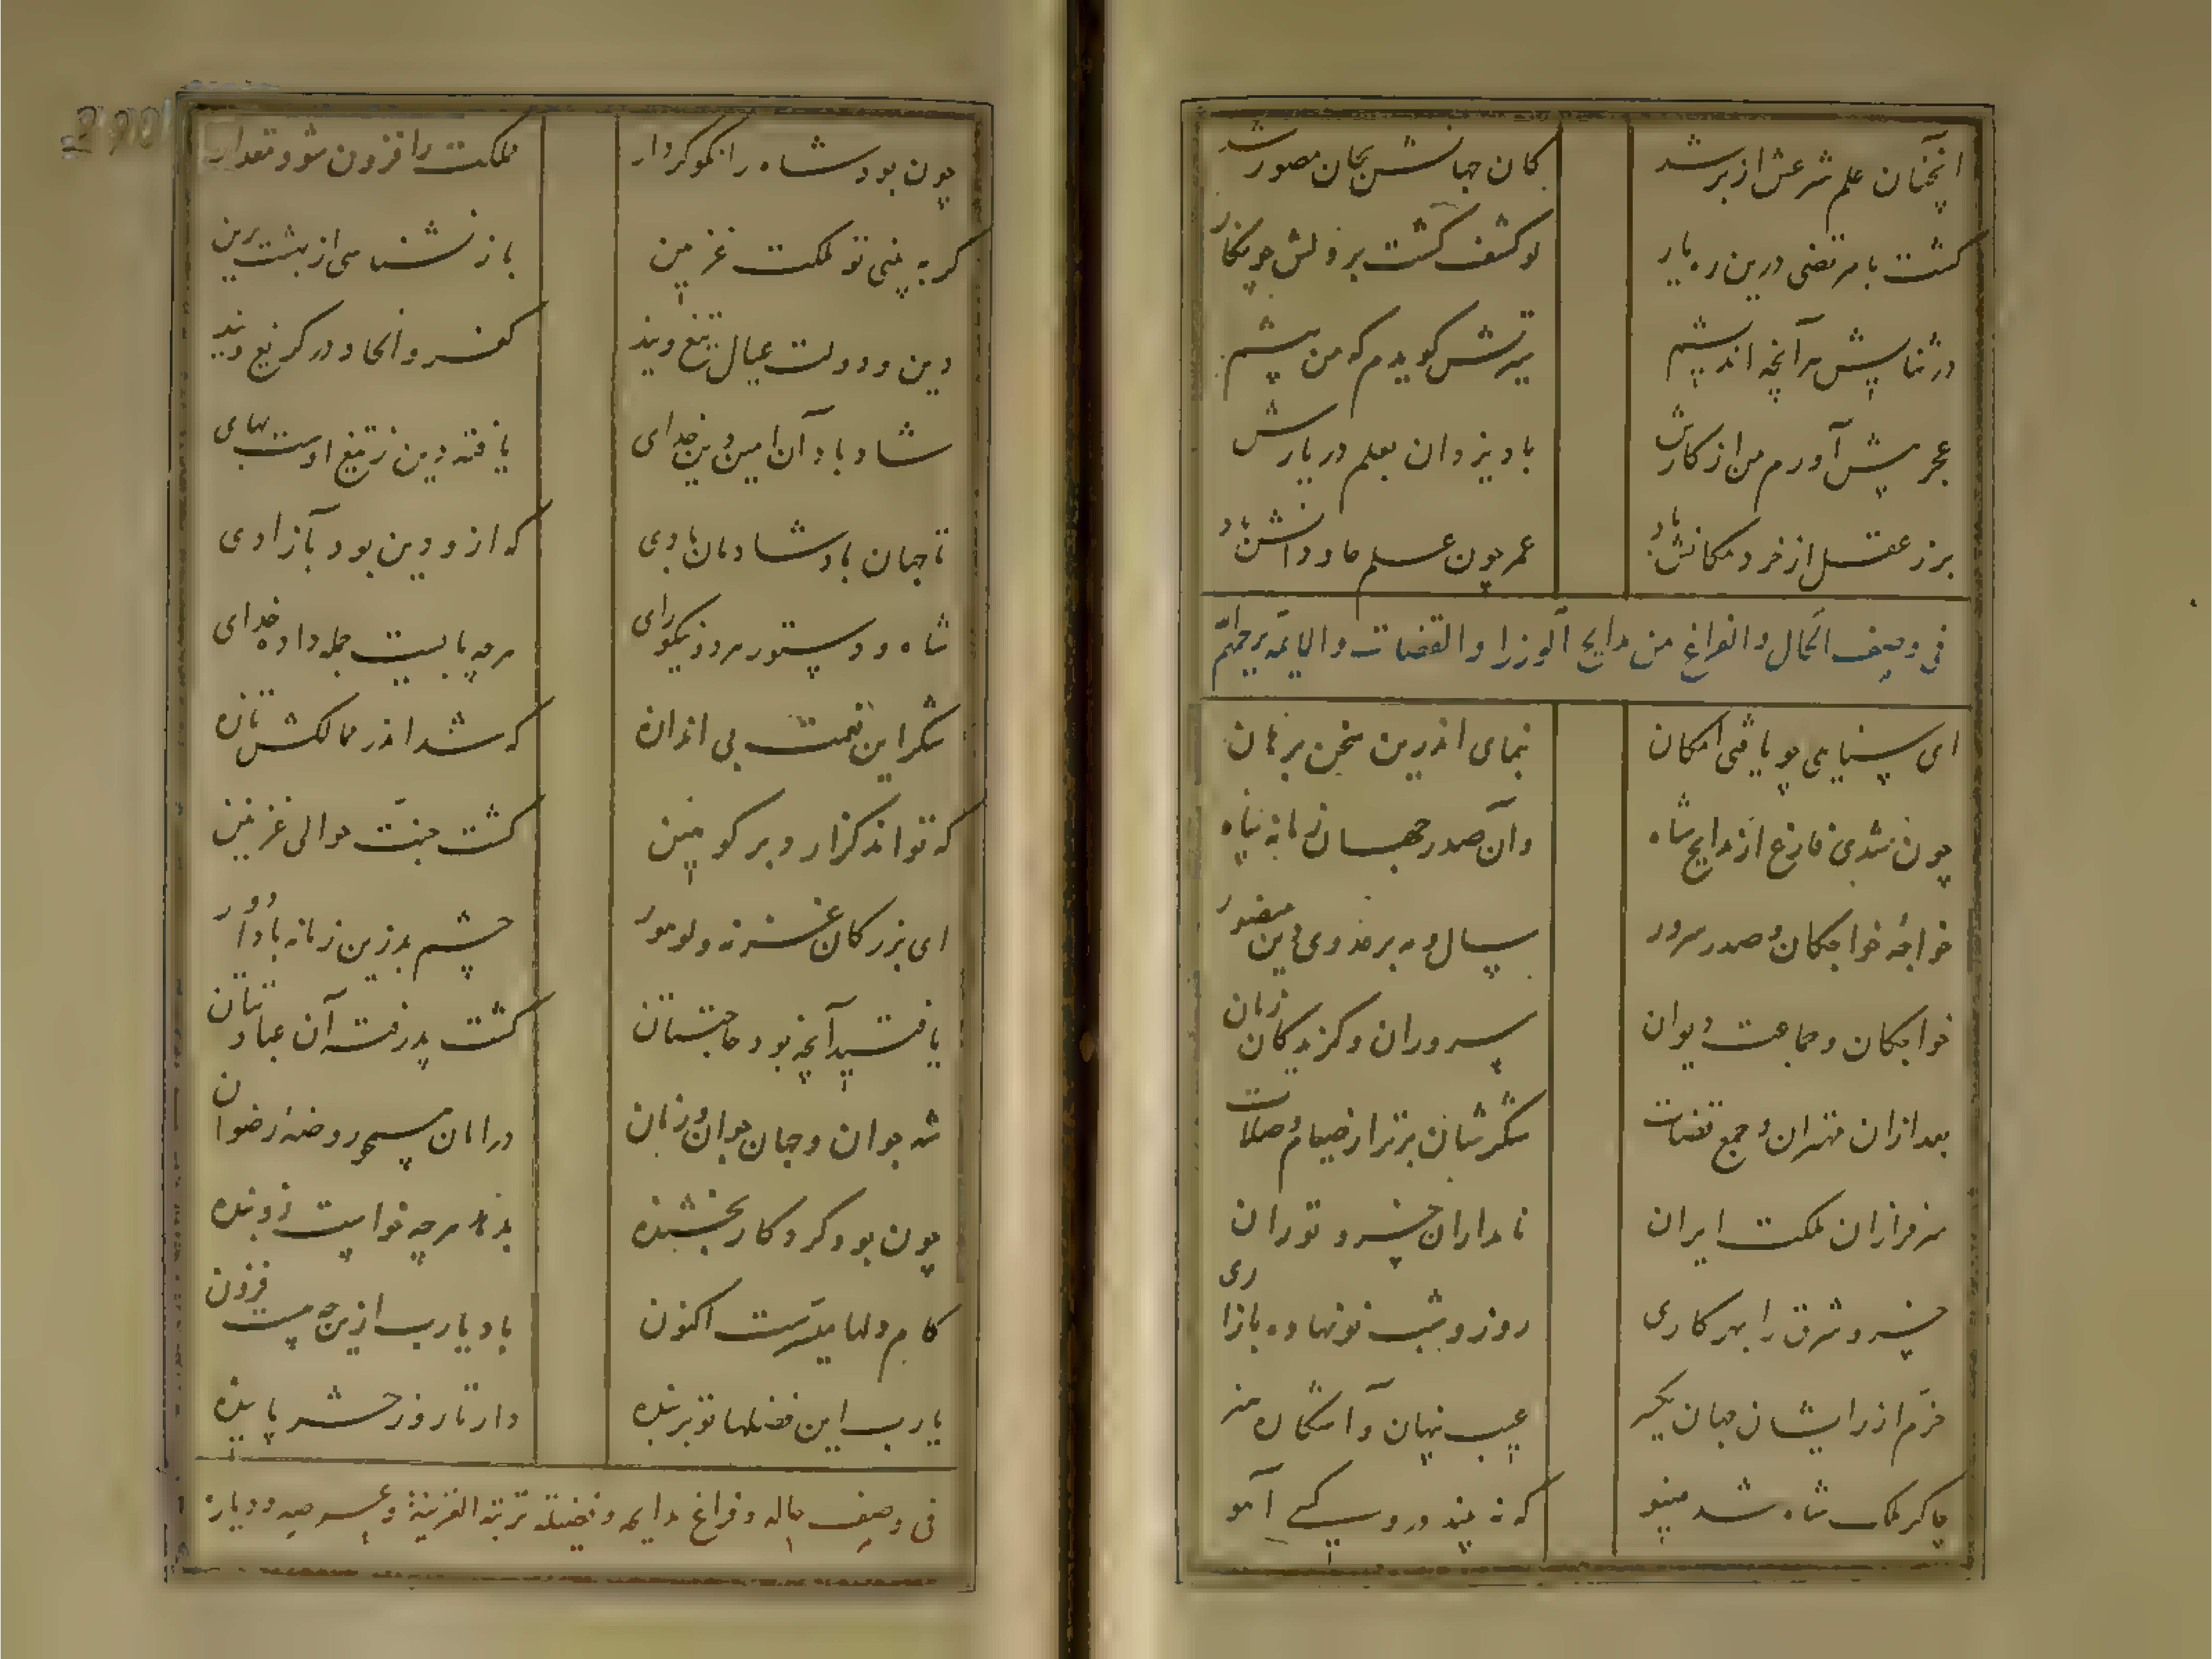 آنچنان علم شرعش از بر شد کان جهانش بجان مصور شد
کشت با مرتضی درین ره یار لو کشف کشت بر دلش چو نکار
در ثناییش هر آنچه اندیشم تیرتش کوید م که من پیشم
عجز پیش آورم من از کارش باد یزدان بعلم در یارش
برز عقل از خرد مکانش باد عمر چون علم جاودانش باد
فی وصف الحال والفراغ من مدایح الوزرا والقضات والایمه یرحمهم
ای سنایی چو یافتی امکان بنمای اندرین سخن برهان
چون شدی فارغ از مدایح شاه وآن صدر جهان زمانه پناه
خواجه خواجکان و صدر سرور
خواجکان و جماعت دیوان سروران و کزیدکان زمان
بعد ازان مهتران و جمع قضات شکرشان برتر از صیام و صلات
سرفرازان ملکت ایران نامداران خسرو توران
خسرو شرق را بهر کاری روز و شب نونهاده بازاری
خرم از رایشان جهان یکسر عیب پنهان و آشکاره هنر
چاکر ملک شاه شد مینو که نه بیند درو کسی آهو
چون بود شاه را نکو کردار مملکت را فزون شود مقدار
کر به بینی تو ملکت غزنین باز نشناسی از بهشت برین
دین و دولت عیال تیغ ویند کفر و الحاد در کریغ ویند
شاد باد آن امین دین خدای یافته دین ز تیغ اوست بهای
تا جهان باد شادمان بادی که ازو دین بود بآزادی
شاه و دستور هر دو نیکورای هرچه بایست جمله داده خدای
شکر این نعمت بی اندازه که شد اندر ممالکش تازه
که تواند کزارد بر کو بین کشت جنت حوالی غزنین
ای بزرکان غزنه و لوهور چشم بد زین زمانه بادا دور
یافتید آنچه بود حاجتتان کشت پدرفته آن عبادتتان
شه جوان و جهان جوان و زمان در امان همچو روضه رضوان
چون بود کردکار بخشنده بدهد هرچه خواست زو بنده
کام دلها میسرست اکنون باد یارب ازین که هست فزون
یارب این فضلها تو بر بنده دار تا روز حشر پاینده
فی وصف حاله وفراغ مدایحه وفضیلة تربة الغزینة